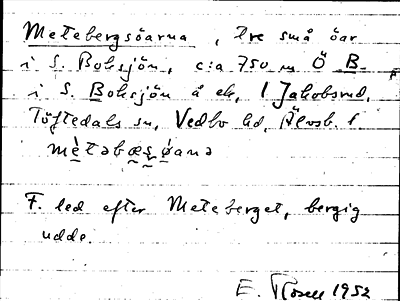 Metebergsöarna, tre små öar
i S. Boksjön, c:a 750 m Ö B.
i S. Boksjön å ek, 1 Jakobsrud,
Töftedals sn, Vedbo hd, Älvsb. l.
mètabæşø̀ana
F. led efter Meteberget, bergig
udde.
E. Rosell 1952